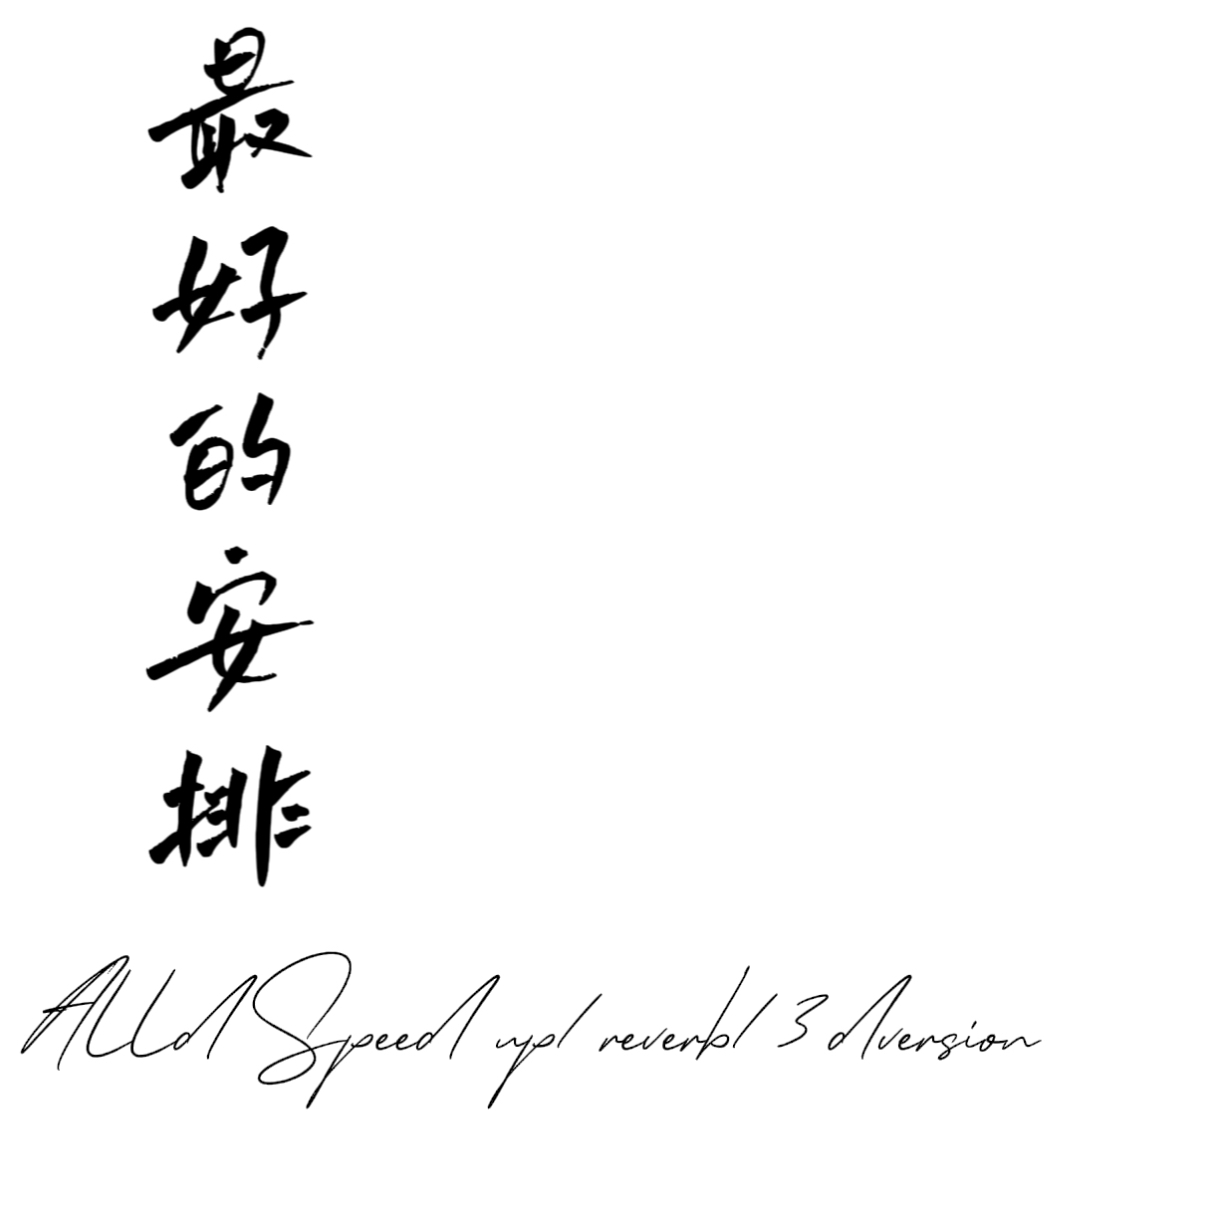 最好的安排
ALLdSpeed up/ reverb/ 3 dversion